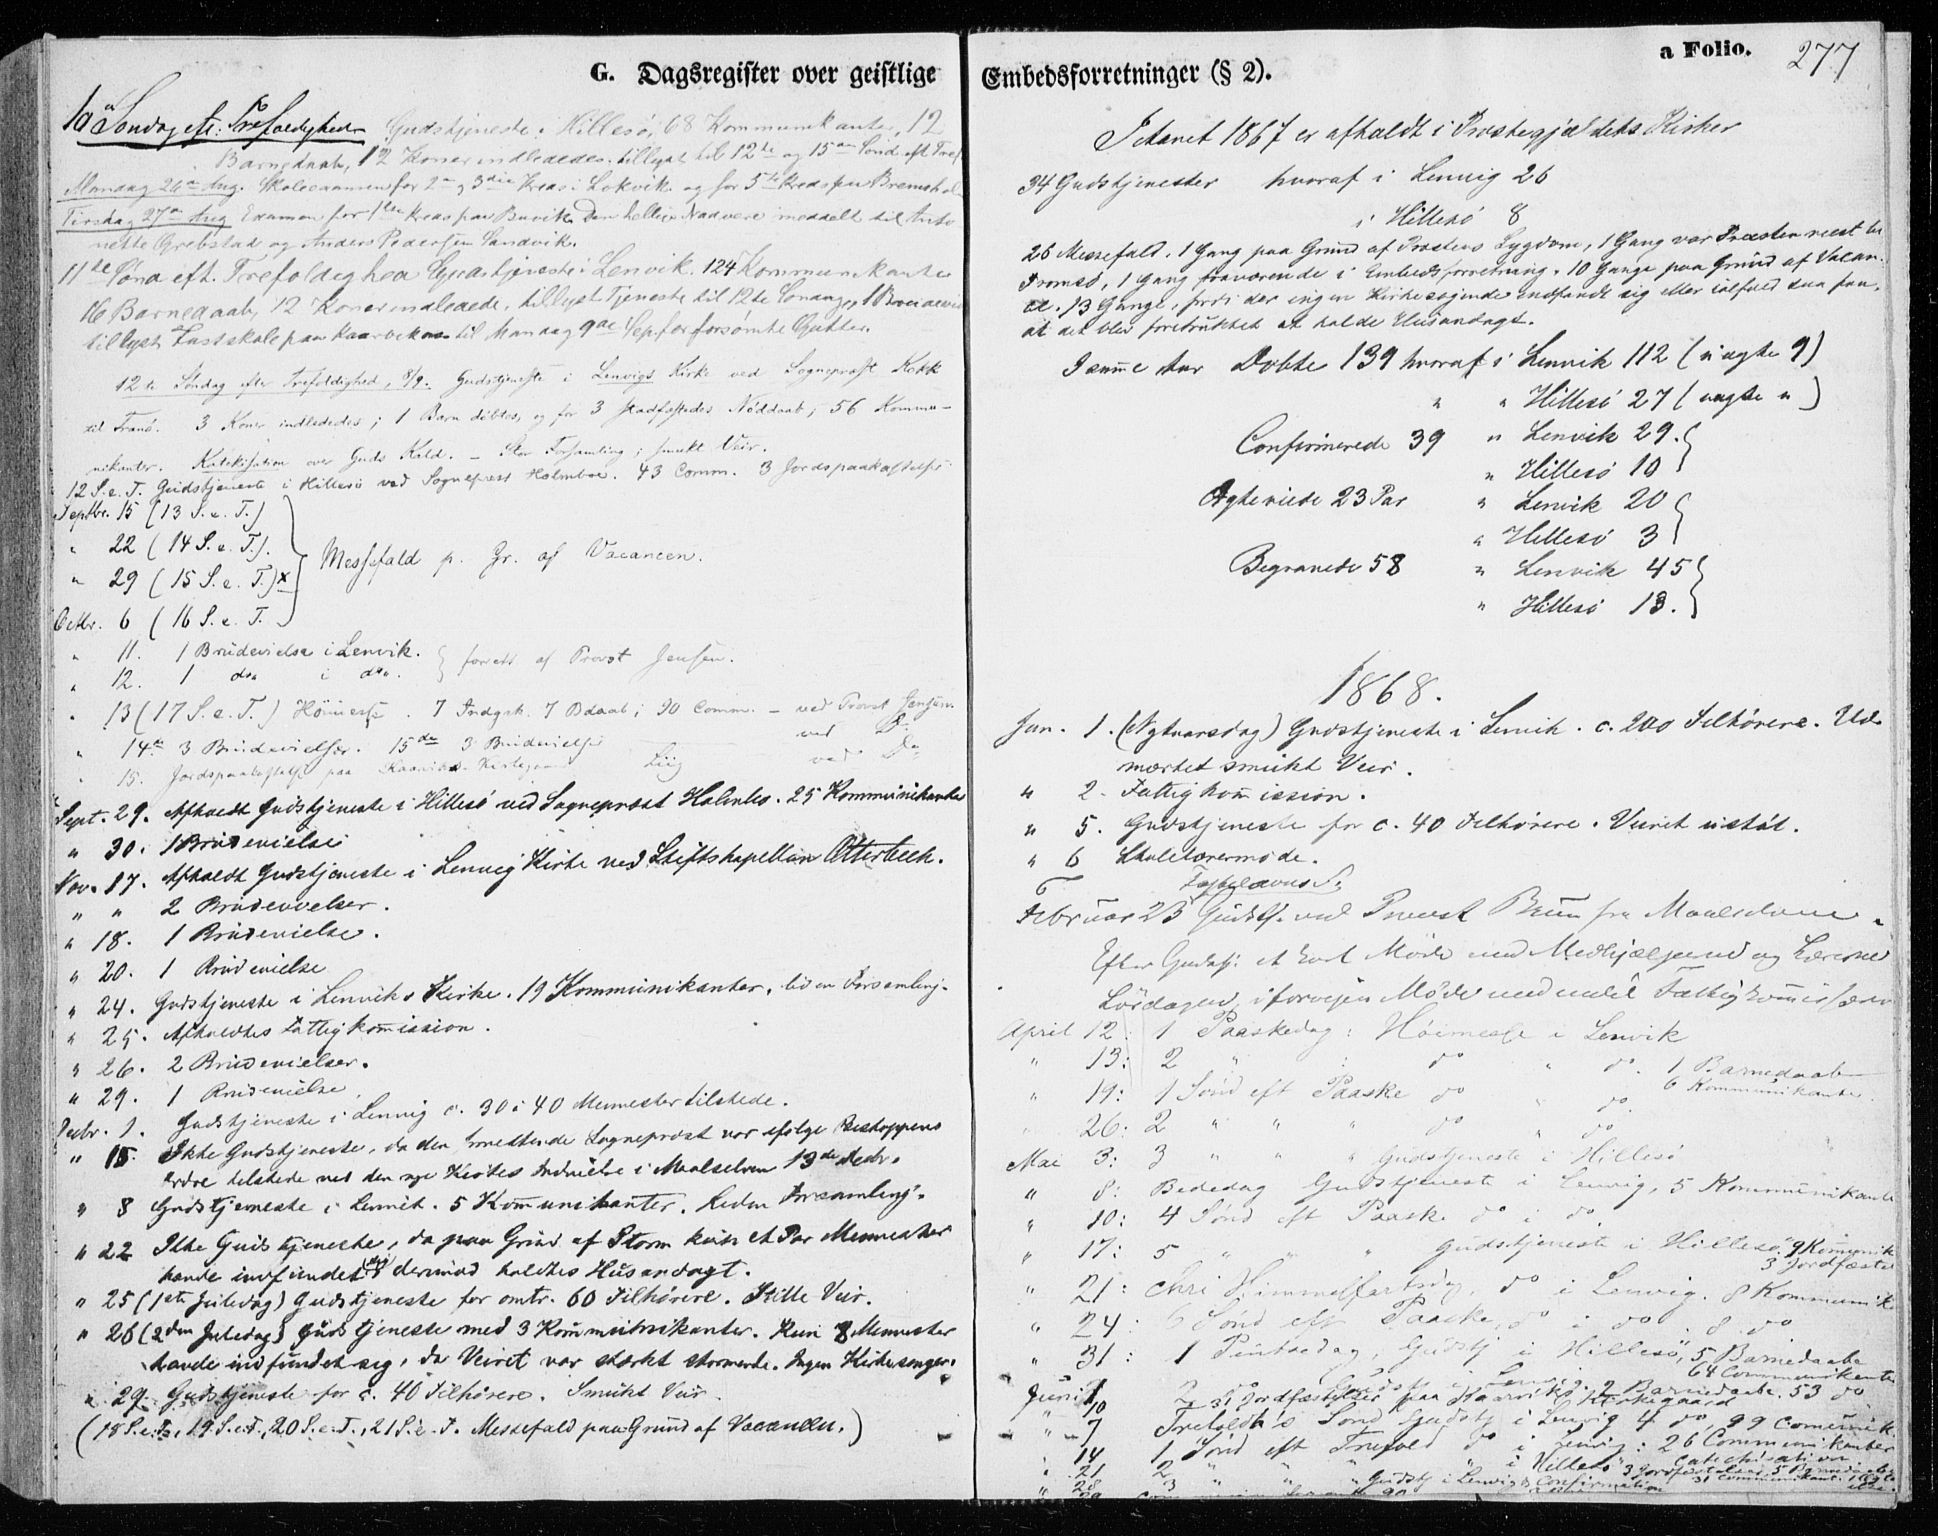 G. Dagsregister over geistlige
10de Søndag eft: Trefoldighed Gudstjeneste i Hillesö, 68 Kommunikanter, 12
Barnedaab, 12 Koner indledede. tillyst til 12te og 15de Sönd. eft Tref
Mandag 26de Aug. Skoleexamen for 2den og 3die Kreds i Lokvik og for 5te Kreds paa Bremshol
Tirsdag 27de Aug Examen for 1ste Kreds paa Buvik. Den hellige Nadvere meddelt til Anto
nette Grebstad og Anders Pedersen Sandvik.
11te Sönd eft. Trefoldighed Gudstjeneste i Lenvik. 124 Kommunikanter
16 Barnedaab, 12 Koner indledede, tillyst Tjeneste til 12te Söndag,
tillyst Fastskole paa Kaarvikhavn til Mandag 9de Sep for forsömte Gutter.
12te Søndag efter Trefoldighed, 8/9. Gudstjeneste i Lenvigs Kirke ved Sognepræst Kokk
til Tranö. 3 Koner indlededes; 1 Barn döbtes, og for 3 stadfæstedes Nöddaab; 56 Kommu-
nikanter. Katekisation over Guds Kald. - Stor Forsamling; smukt Veir.
12 S.e.T. Gudstjeneste i Hillesö ved Sognepræst Holmboe. 43 Comm. 3 Jordspaakastelser
Septbr. 15 (13 S.e.T.)
" 22 (14 S.e.T.).
" 29 (15 S.e.T.)x Messefald p. Gr. af Vacancen.
Octbr. 6 (16 S.e.T.
" 11. 1 Brudevielse i Lenvik.
" 12. 1 do i do. } forrett af Provst Jensen.
" 13 (17 S.e.T.) Höimesse. 7 Indgsk. 7 Bdaab; 90 Comm. - ved Provst Jensen.
" 14de 3 Brudevielser. 15de 3 Brudevielser ved Do
" 15. Jordspaakastelse paa Kaarvikens Kirkegaard Liig ved Do
Sept. 29. Afholdt Gudstjeneste i Hillesö ved Sognepræst Holmbo. 25 Kommunikanter
" 30. 1 Brudevielse
Nov. 17. Afholdt Gudstjeneste i Lenvig Kirke ved Stiftskapellan Otterbech.
" " 2 Brudevielser.
" 18. 1 Brudevielse.
" 20. 1 Brudevielse
" 24. Gudstjeneste i Lenviks Kirke. 19 Kommunikanter. liden Forsamling.
" 25. Afholdtes Fattigkommission.
" 26. 2 Brudevielser.
" 29. 1 Brudevielse.
Decbr. 1. Gudstjeneste i Lenvig c. 30 à 40 Mennesker tilstede.
" 15 Ikke Gudstjeneste, da den Sognepræst var ifølge Biskoppens
Ordre tilstede ved den nye Kirkes Indvielse i Maalselven 13de Decbr.
" 8 Gudstjeneste i Lenvik. 5 Kommunikanter. Liden Forsamling.
" 22 Ikke Gudstjeneste, da paa Grund af Storm kun et Par Mennesker
havde indfundet sig derimod holdtes Husandagt.
" 25 (1ste Juledag) Gudstjeneste for omtr. 60 Tilhörere. Stille Veir.
" 26 (2den Juledag) Gudstjeneste med 3 Kommunikanter. Kun 8 Mennesker
havde indfundet sig, da Veiret var stærkt stormende. Ingen Kirkesanger.
" 29. Gudstjeneste for c. 40 Tilhörere. Smukt Veir.
(18 S.e.T., 19 S.e.T., 20 S.e.T., 21 S.e.T. Messefald paa Grund af Vacancen.)
Embedsforretninger (§ 2).
a Folio. 277
I Aaret 1867 er afholdt i Præstegjældets Kirker
34 Gudstjenester hvoraf i Lenvig 26
i Hillesö 8
26 Messefald. 1 Gang paa Grund af Præstens Sygdom, 1 Gang var Præsten reist til
Tromsö, 1 Gang fraværende i Embedsforretning. 10 Gange paa Grund af Vacan-
ce. 13 Gange, fordi der ingen Kirkesøgende indfandt sig eller ialfald saa faa,
at det blev foretrukket at holde Husandagt.
I samme Aar Döbte 139 hvoraf i Lenvik 112 (uægte 9)
" " Hillesö 27 (uægte ")
Confirmerede 39 " Lenvik 29.
" Hillesö 10
Ægteviede 23 Par " Lenvik 20
" Hillesö 3
Begravede 58 " Lenvik 45
" Hillesö 13.
1868.
Jan. 1. (Nytaarsdag) Gudstjeneste i Lenvik. c. 200 Tilhörere. Ud-
mærket smukt Veir.
" 2. Fattigkommission.
" 5. Gudstjeneste for c. 40 Tilhörere. Veiret ustöt.
" 6 Skolelærermøde.
Fastelavns S.
Februar 23 Gudstj. ved Provst Brun fra Maalselven.
Efter Gudstj: et kort Möde med Medhjælperne og Lærerne
Lördagen iforveien Möde med Fattigkommissæren
April 12: 1 Paaskedag: Höimesse i Lenvik
" 13: 2 " : do " do. 1 Barnedaab
6 Kommunikanter.
" 19: 1 Sönd eft Paaske do " do.
" 26: 2 " " " do " do
Mai 3: 3 " " " Gudstjeneste i Hillesö
" 8: Bededag Gudstjeneste i Lenvig, 5 Kommunikant
" 10: 4 Sönd eft Paaske do i do
" 17: 5 " " " Gudstjeneste i Hillesö, 9 Kommunik
3 Jordfæstel
" 21: Chri Himmelfartsdag do i Lenvig. 8 Kommunik
" 24: 6 Sönd eft Paaske, do i do. 8 do
" 31: 1 Pintsedag, Gudstj i Hillesö, 5 Barnedaabe
64 Communikanter
Juni 1 2 do Gudstj i Lenvig. 2 Barnedaabe. 53 do
31 Jordfæstelser paa Kaarviks Kirkegaard
" 7 Trefoldh's Sönd Gudstj i Lenvig 4 do, 99 Communik.
" 14 1 Sönd eft Trefold do i Lenvig: 26 Communikanter
Catechisation
" 21 2 " " " " i Hillesö 3 Jordfæstelser 5 Barnedaab
" 28 3 " " " Gudstj i Lenvig & Confirmation 31 Communikant.